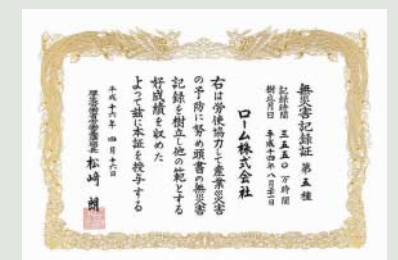 無災害記録証 第五種
記録時間 三五五〇 万時間
樹立月日 平成十四年 八月三一日
ローム株式会社
右は労使協力して産業災害
の予防に努め頭書の無災害
記録を樹立し他の範とする
好成績を収めた
よって茲に本証を授与する
平成十六年 四月十六日
厚生労働省労働基準局長 松崎 朗